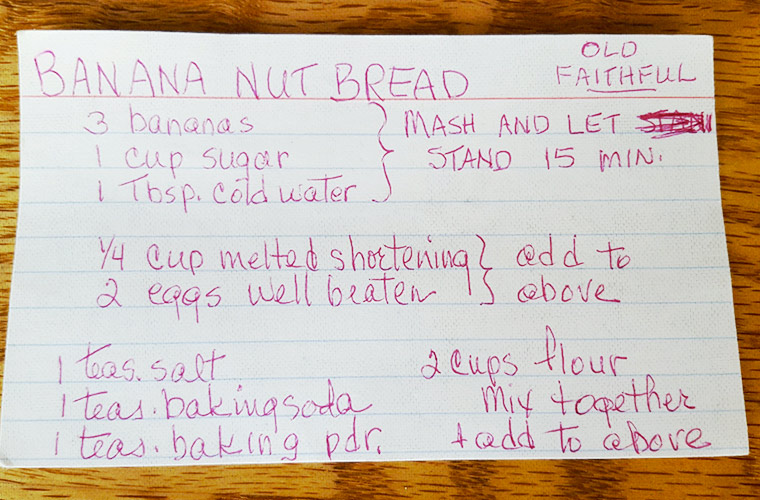 BANANA NUT BREAD
OLD
FAITHFUL
3 bananas
1 cup sugar
1 Tbsp. cold water
MASH AND LET
STAND 15 MIN.
1/4 cup melted shortening
2 eggs well beaten
add to
above
1 teas. salt
1 teas. baking soda
1 teas. baking pdr.
2 cups flour
mix together
+ add to above